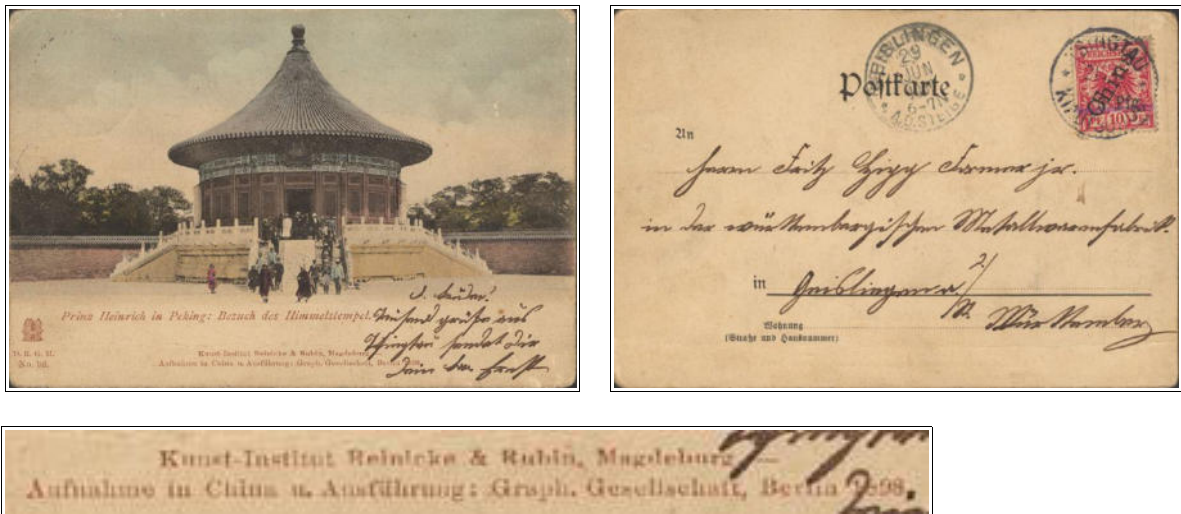 Prinz Heinrich in Peking: Besuch des Himmelstempel.
D. R. G. M.
Kunst-Institut Reinicke & Rubin, Magdeburg
Aufnahme in China u. Ausführung: Graph. Gesellschaft, Berlin 1898.
Tausend grüße aus
Tsingtau sendet Dir
Dein Ernst
GEISLINGEN
29
JUN
6-7N
A.D.STEIGE
TSINGTAU
China
10
Postkarte
An
Herrn Fritz jr.
in der württembergischen Metallwarenfabrik.
in Geislingen a/
St. Württemberg
Wohnung
(Straße und Hausnummer)
Kunst-Institut Reinicke & Rubin, Magdeburg
Aufnahme in China u. Ausführung: Graph. Gesellschaft, Berlin 1898.